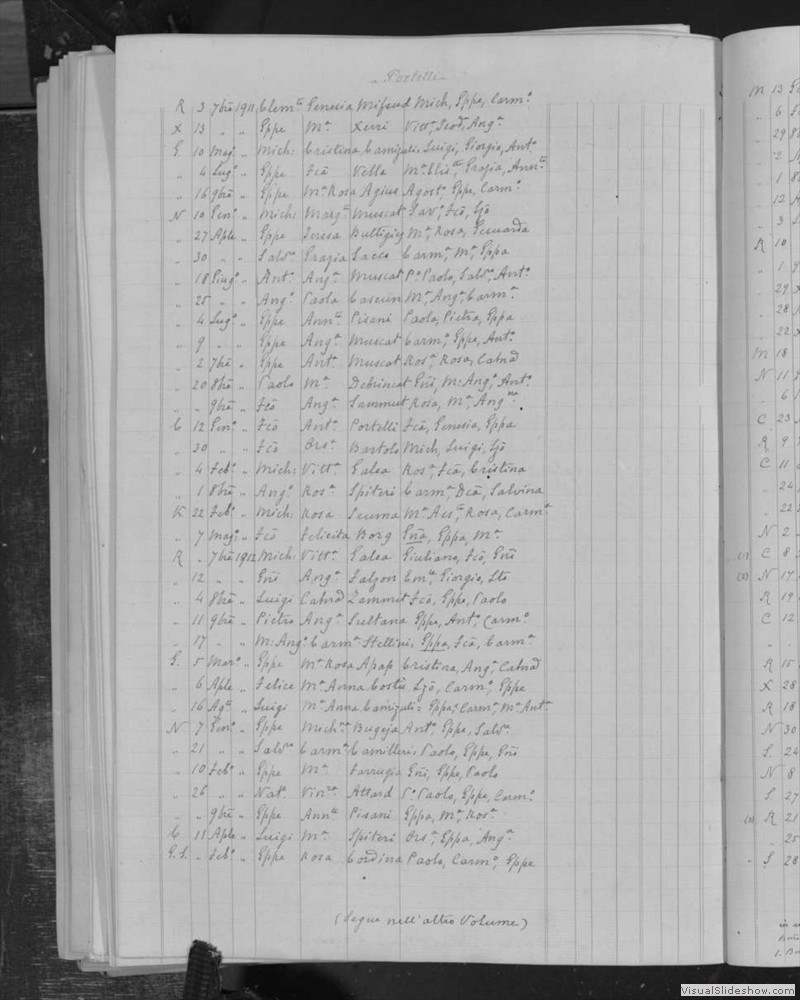 „ Portelli „
R 3 7bre 1911 Clemte Genesia Mifsud Mich, Gppe, Carmo
X 13 „ „ Gppe Ma Xerri Vitta, Teoda, Anga
G 10 Mago „ Mich: Cristina Camizuli: Luigi, Giorgio, Anto
„ 4 Lugo „ Gppe Fca Vella Ma Elista, Grazia, Annta
„ 16 9bre „ Gppe Ma Rosa Agius Agosto, Gppe, Carmo
N 10 Geno „ Mich: Margta Muscat Savo, Fco, Gjo
„ 27 Aple „ Gppe Teresa Buttigieg Ma, Rosa, Gesuarda
„ 30 „ „ Salvo Grazia Sacco Carma, Ma, Gppa
„ 18 Giugo „ Anto Anga Muscat Po Paolo, Salvo, Anto
„ 25 „ „ Ango Paola Cascun Ma, Anga, Carma
„ 4 Lugo „ Gppe Annta Pisani Paola, Pietro, Gppa
„ 9 „ „ Gppe Anga Muscat Carmo, Gppe, Anto
„ 2 7bre „ Gppe Anta Muscat Rosa, Rosa, Catnd
„ 20 8bre „ Paolo Ma Debrincat Gni, M: Ango, Anto
„ „ 9bre „ Fco Anga Sammut Rosa, Ma, Angma
C 12 Geno „ Fco Anta Portelli Fca, Genesia, Gppa
„ 30 „ „ Fco Orsa Bartolo Mich, Luigi, Gjo
„ 4 Febo „ Mich: Vitta Galea Rosa, Fca, Cristina
„ 1 8bre „ Ango Rosa Spiteri Carma, Dca, Salvina
K 22 Febo „ Mich: Rosa Scuma Ma Assta, Rosa, Carma
„ 7 Mago „ Fco Felicita Borg Gna, Gppa, Ma
R „ 7bre 1912 Mich: Vitta Galea Giuliano, Fco, Gni
„ 12 „ „ Gni Anga Falzon Emle, Giorgio,
„ 4 8bre „ Luigi Catnd Zammit Fco, Gppe, Paolo
„ 11 9bre „ Pietro Anga Sultana Gppe, Anto, Carmo
„ 17 „ „ M: Ango Carma Stellini, Gppa, Fca, Carma
G. 5 Maro „ Gppe Ma Rosa Apap Cristina, Anga, Catnd
„ 6 Aple „ Felice Ma Anna Gjo, Carmo, Gppe
„ 16 Ago „ Luigi Ma Anna Camizuli: Gppa, Carma, Ma Anta
N 7 Geno „ Gppe Michna Bugeja Anto, Gppe, Salvo
„ 21 „ „ Salvo Carma Camilleri: Paolo, Gppe, Gni
„ 10 Febo „ Gppe Ma Farrugia Gni, Gppe, Paolo
„ 26 „ „ Natle Vinza Attard Po Paolo, Gppe, Carmo
„ „ 9bre „ Gppe Annta Pisani Gppa, Ma, Rosa
C 11 Aple „ Luigi Ma Spiteri Orsa, Gppa, Anga
G.S. „ Febo „ Gppe Rosa Cordina Paolo, Carmo, Gppe
(Segue nell'altro Volume)
M 13
„ 6
„ 29
„ 2
„ 1
„ 12
„ 3
R 10
„ 1
„ 29
„ 28
„ 22
M 18
N 11
„ 6
C 23
R 9
C 11
„ 24
„ 22
N 2
(1) C 8
N 17
R 19
C 12
R 15
X 28
R 18
N 30
S. 24
N 8
S. 27
R 21
„ 25
S 28
VisualSlideshow.com